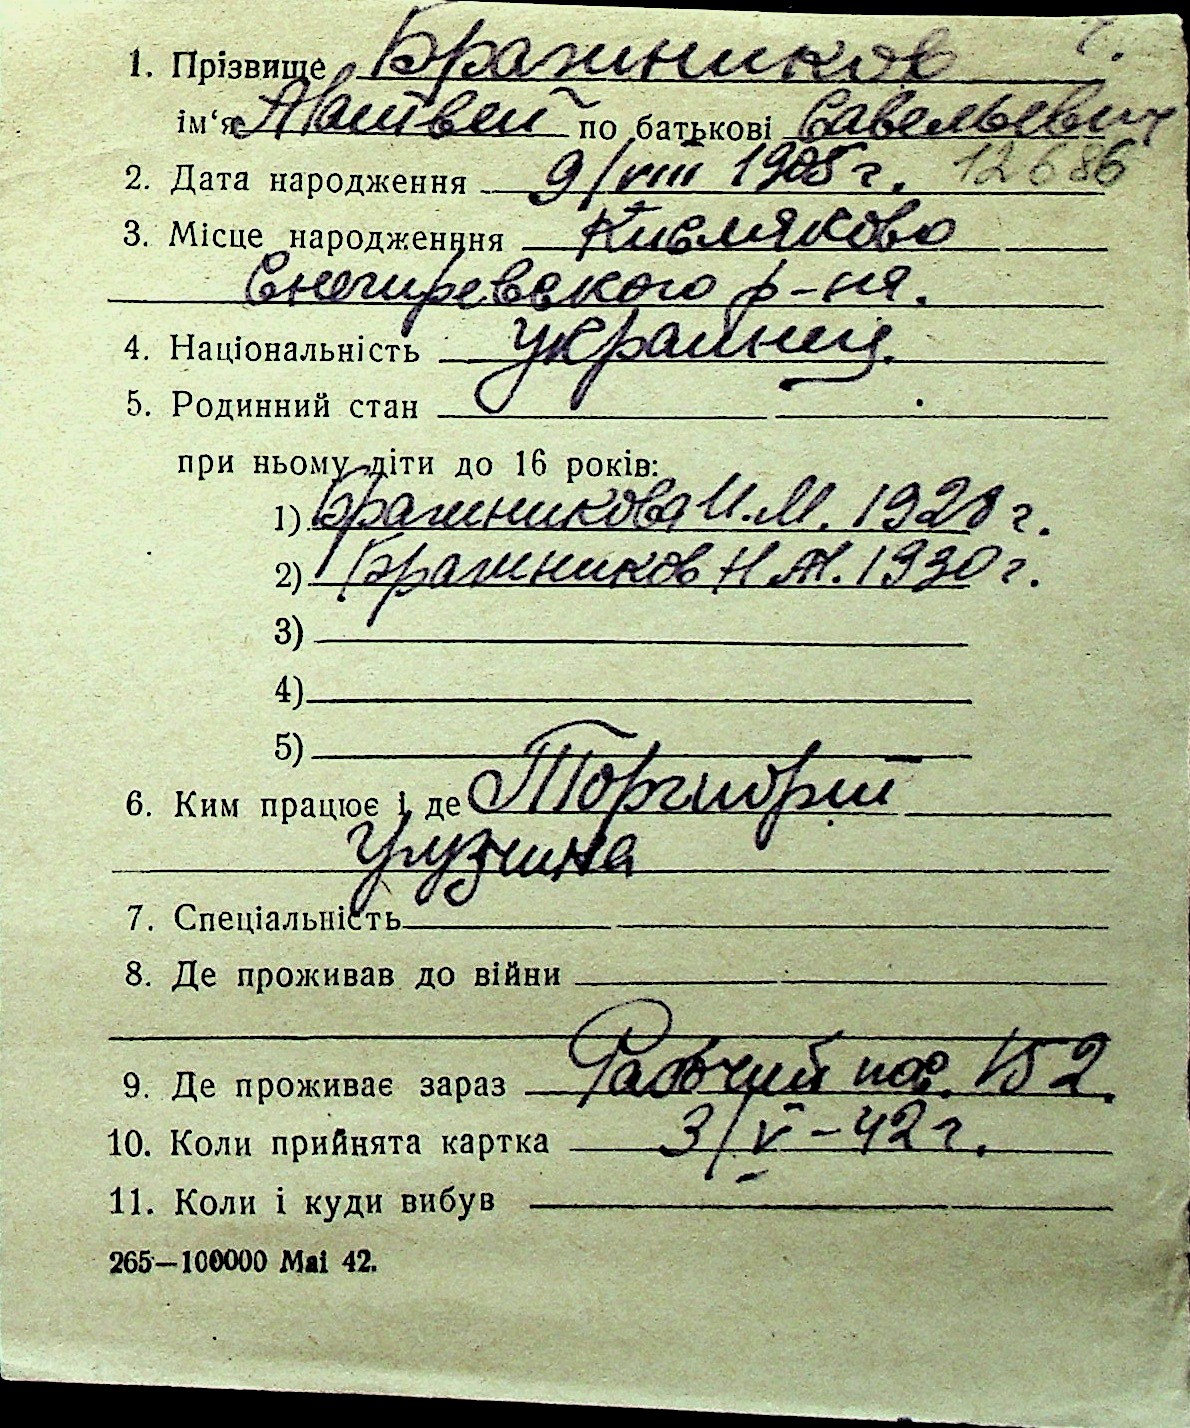 1. Прізвище Бражников
ім‘я Матвей по батькові Савельевич
2. Дата народження 9/VIII 1905 г. 12686
3. Місце народженння Кисляково
Снегиревского р-на.
4. Національність украинец.
5. Родинний стан
при ньому діти до 16 років:
1) Бражникова И.М. 1928 г.
2) Бражников Н.М. 1930 г.
3)
4)
5)
6. Ким працює і де
7. Спеціальність
8. Де проживав до війни
9. Де проживає зараз Рабочий пос. 152.
10. Коли прийнята картка 3/V-42 г.
11. Коли і куди вибув
265—100000 Mai 42.